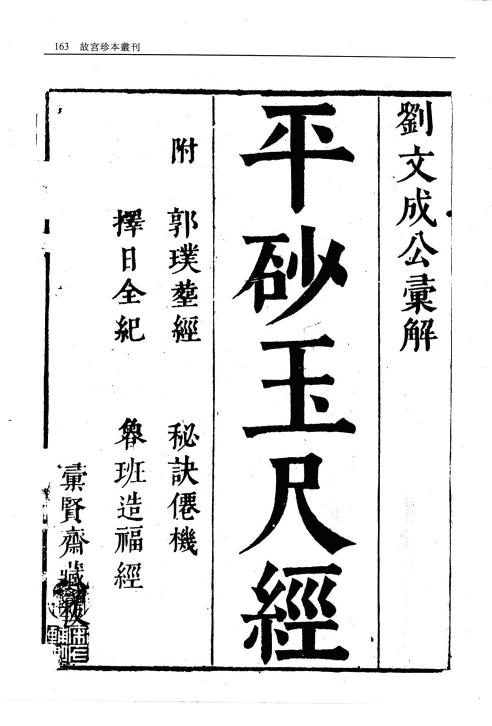 163 故宫珍本叢刊
劉文成公彙解
平砂玉尺經
附 郭璞葬經 秘訣僊機
擇日全紀 魯班造福經
彙賢齋藏板